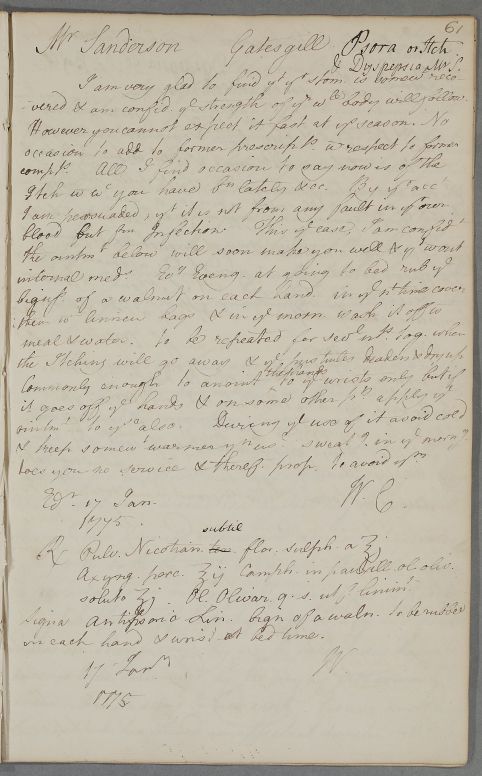 61
Mr Sanderson Gatesgill Psora or Itch
& Dyspepsia Mr S.
I am very glad to find yt yr stom. is now reco
-vered & am confid. ye strength of yr wle body will follow.
However you cannot expect it fast at ys season. No
occasion to add to former prescripts w respect to former
complts. All I find occasion to say now is of the
Itch w wc you have bn lately &cc. By yr acc
I am perswaded, yt it is not from any fault in yr own
blood but fm Infection. This ye case, I am confidt
the ointmt below will soon make you well & yt wout
internal meds. Evy Eveng. at going to bed rub ye
bigness of a walnut on each hand. in ye nt time cover
them w linnen bags & in ye morn. wash it off w
meal & water. to be repeated for sevl nts. tog. when
the Itching will go away & ye pustules deaden & dry up
Commonly enough to anoint the hands to ye wrists only but if
it goes off ye hands & on some other pts apply ye
ointmt to ym also. During ye use of it avoid cold
& keep somewt warmer yn us. sweatg. in ye morng
does you no service & theref. prop. to avoid ym
Edr. 17 Jan. W. C.
1775.
subtil
℞ Pulv. Nicotian. flor. sulph. a ʒj
Axyng. porc. ʒij Camph. in pauxill. ol. oliv.
soluto ʒj. Ol. Olivar. q. s. ut f. linimt.
Signa Antipsoric Lin. bign of a waln. to be rubbed
on each hand & wrist at bed time.
17 Janry W.
1775